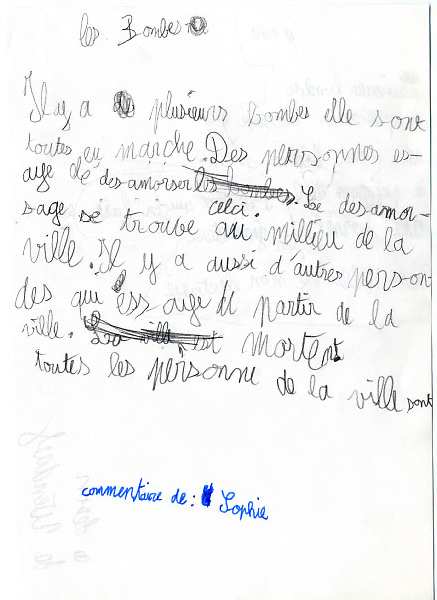 les Bombes
Il y a plusieurs bombes elle sont
toutes en marche. Des personnes es-
aye de desamorser les bombes. Le desamor-
celà.
sage se trouve au millieu de la
ville. Il y a aussi d'autres person
des qui éss aye de partir de la
ville. est Mortent
toutes les personne de la ville sont
commentaire de : Sophie